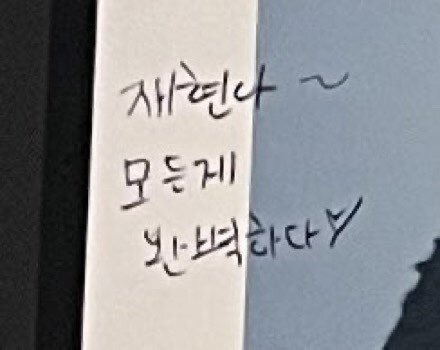 재현아~
모든게
완벽하다♡